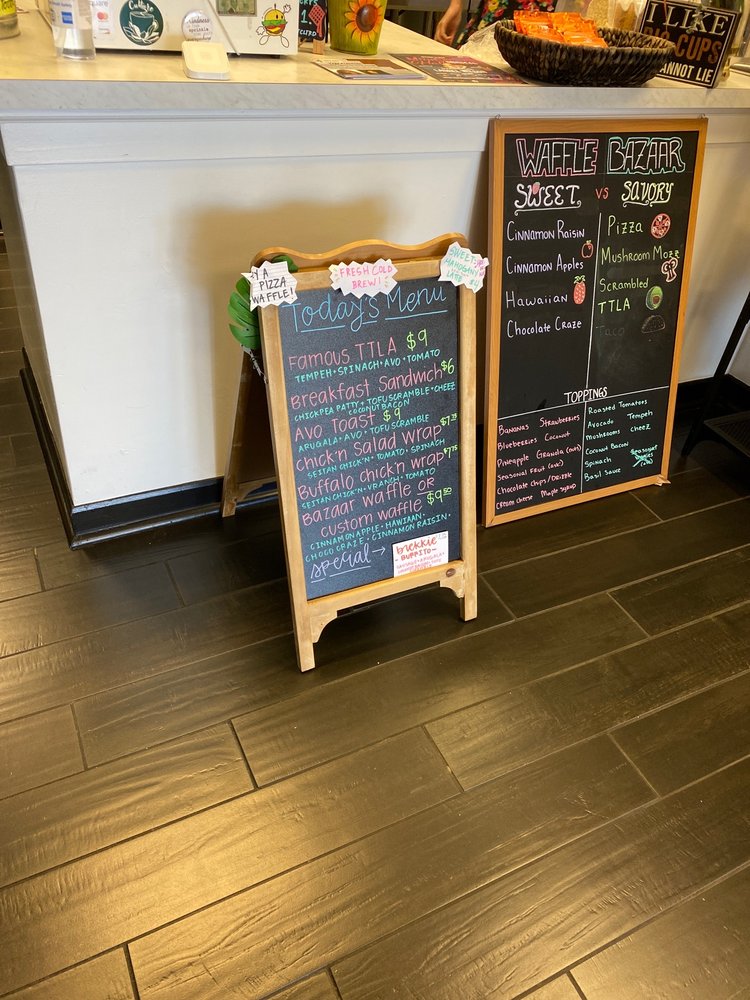 Culture
kindness
I LIKE
BIG CUPS
CANNOT LIE
A PIZZA
WAFFLE!
FRESH COLD
BREW!
SWEET
MAHOGANY
LATTE $4
Today's Menu
FAMOUS TTLA $9
TEMPEH • SPINACH • AVO • TOMATO
BREAKFAST SANDWICH $6
CHICKPEA PATTY • TOFU SCRAMBLE • CHEEZ
COCONUT BACON
AVO TOAST $9
ARUGALA • AVO • TOFU SCRAMBLE
CHICK'N SALAD WRAP $7.75
SEITAN CHICK'N • TOMATO • SPINACH
BUFFALO CHICK'N WRAP $7.75
SEITAN CHICK'N • VRANCH • TOMATO
BAZAAR WAFFLE OR
CUSTOM WAFFLE $9.50
CINNAMON APPLE • HAWIIAN •
CHOCO CRAZE • CINNAMON RAISIN
special →
brekkie
- BURRITO -
WAFFLE BAZAAR
SWEET VS SAVORY
CINNAMON RAISIN
CINNAMON APPLES
HAWAIIAN
CHOCOLATE CRAZE
PIZZA
MUSHROOM MOZZ
SCRAMBLED
TTLA
TACO
TOPPINGS
BANANAS STRAWBERRIES
BLUEBERRIES COCONUT
PINEAPPLE GRANOLA (nut)
SEASONAL FRUIT (ask)
CHOCOLATE CHIPS/DRIZZLE
CREAM CHEEZ MAPLE SYRUP
ROASTED TOMATOES
AVOCADO TEMPEH
MUSHROOMS CHEEZ
COCONUT BACON
SPINACH
BASIL SAUCE
SEASONAL